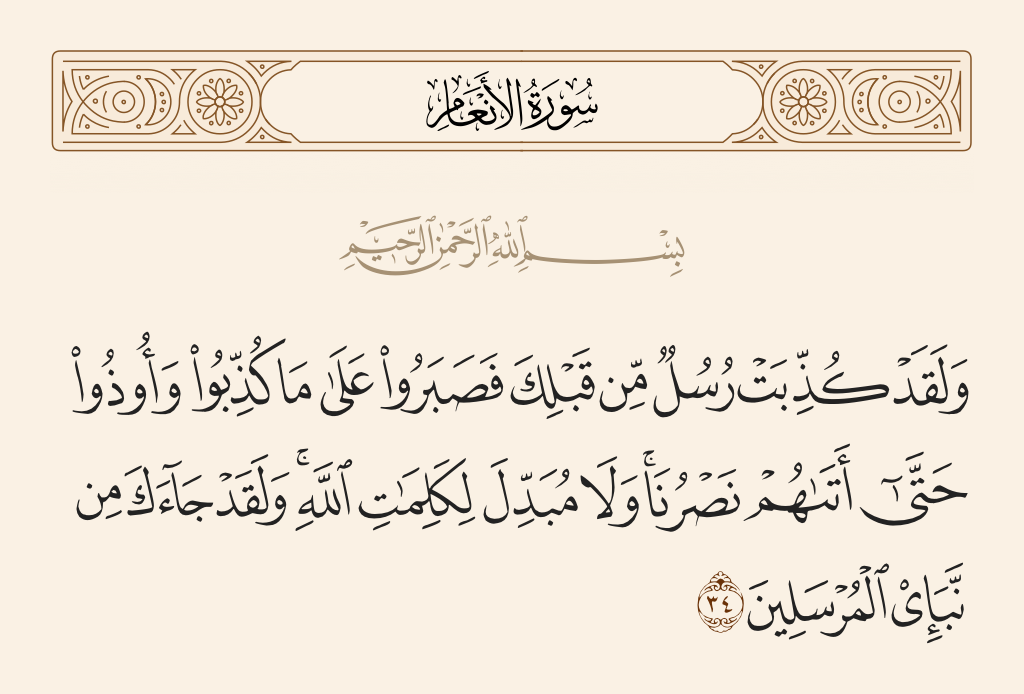 سُورَةُ الأَنْعَامِ
بِسْمِ ٱللَّهِ ٱلرَّحْمَٰنِ ٱلرَّحِيمِ
وَلَقَدْ كُذِّبَتْ رُسُلٌ مِّن قَبْلِكَ فَصَبَرُوا۟ عَلَىٰ مَا كُذِّبُوا۟ وَأُوذُوا۟
حَتَّىٰٓ أَتَىٰهُمْ نَصْرُنَا ۚ وَلَا مُبَدِّلَ لِكَلِمَٰتِ ٱللَّهِ ۚ وَلَقَدْ جَآءَكَ مِن
نَّبَإِى۟ ٱلْمُرْسَلِينَ ٣٤